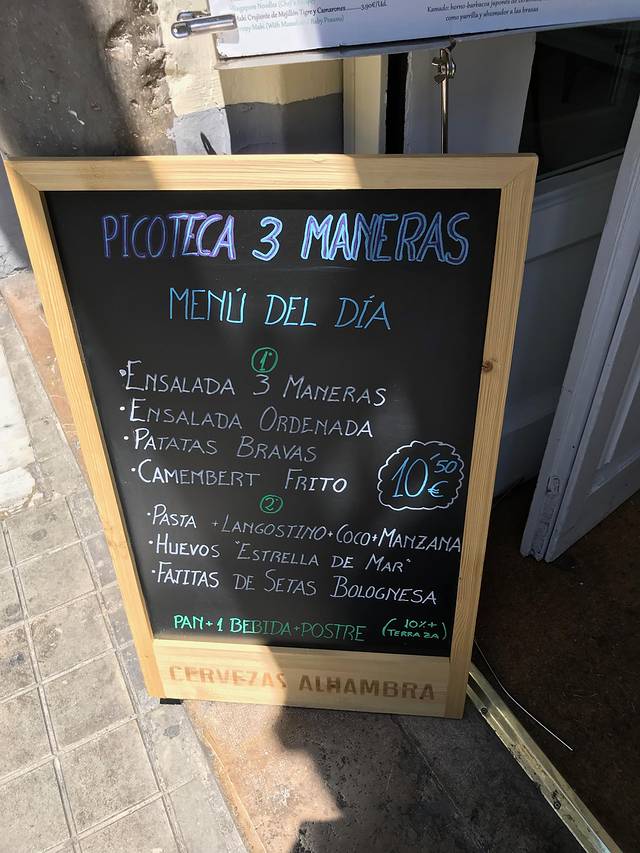 Singapore Noodles (Chef's
Maki Crujiente de Mejillón Tigre y Camarones 3,90€/Ud.
Kamado: horno-barbacoa japonés de
como parrilla y ahumador a las brasas
PICOTECA 3 MANERAS
MENÚ DEL DÍA
1º
•ENSALADA 3 MANERAS
•ENSALADA ORDENADA
•PATATAS BRAVAS
•CAMEMBERT FRITO
10'50 €
2º
•PASTA +LANGOSTINO+COCO+MANZANA
•HUEVOS "ESTRELLA DE MAR"
•FATITAS DE SETAS BOLOGNESA
PAN+1 BEBIDA+POSTRE (10%+ TERRAZA)
CERVEZAS ALHAMBRA